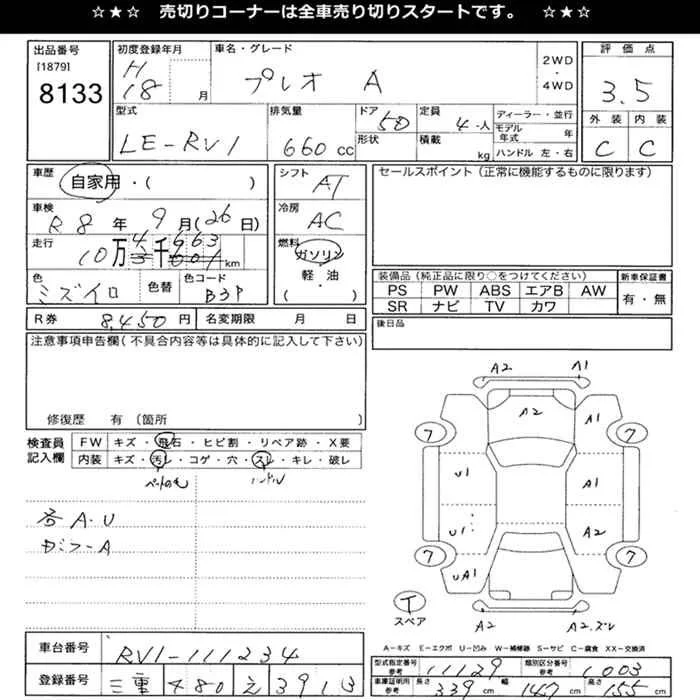 ☆★☆ 売切りコーナーは全車売り切りスタートです。 ☆★☆
出品番号 初度登録年月 車名・グレード 2WD・4WD 評価点
[1879] H
8133 18 月 プレオ A 3.5
型式 排気量 ドア 定員 ディーラー・並行 外装 内装
LE-RV1 660 cc 5D 4人 モデル年式 年 C C
形状 積載 kg ハンドル 左・右
車歴 自家用・( ) シフト AT セールスポイント(正常に機能するものに限ります)
車検 R8年 9月(26日) 冷房 AC
走行 10万4千663 km 燃料 ガソリン・軽・油( )
色 ミズイロ 色替 色コード B3P
装備品(純正品に限り○をつけてください) 新車保証書
PS PW ABS エアB AW 有・無
SR ナビ TV カワ
R券 8,450円 名変期限 月 日 後日品
注意事項申告欄(不具合内容等は具体的に記入して下さい)
修復歴 有(箇所 )
検査員記入欄 FW キズ・飛石・ヒビ割・リペア跡・X要
内装 キズ・汚レ・コゲ・穴・スレ・キレ・破レ
ペットの毛 ハンドル
各A・U
A2 A1
A2 A1
7 7
U1 A1
U1 A2
7 7
UA1
T
スペア
A2 A2.ズレ
A-キズ E-エクボ U-凹み W-補修跡 S-サビ C-腐食 XX-交換済
車台番号 RV1-111234
型式指定番号 参考 11129 類別区分番号 参考 1003
登録番号 三重 480 え 3913
車庫証明用 参考 長さ 339 cm 幅 147 cm 高さ 155 cm